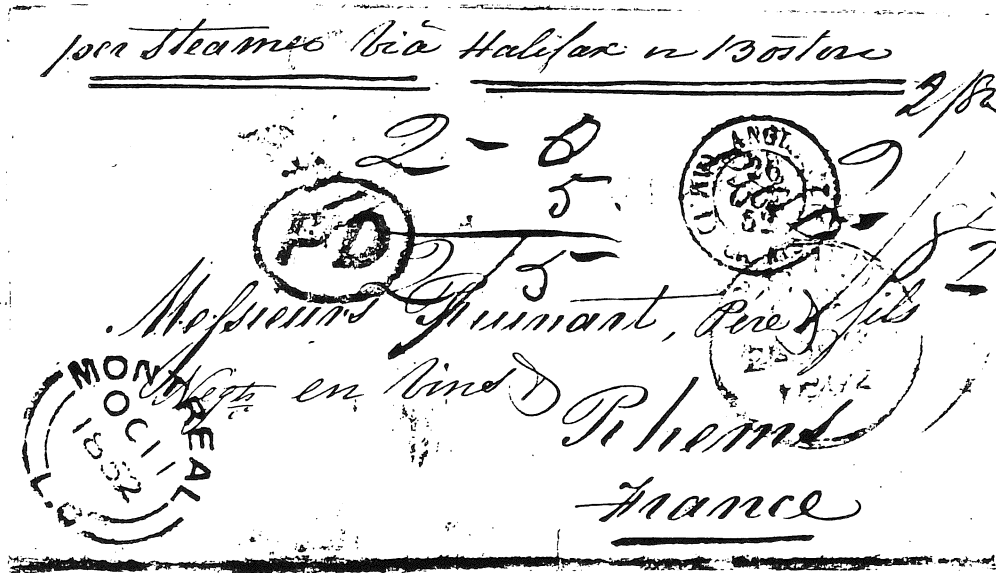 per Steamer viâ Halifax or Boston
2/82
2 - 8
5
2/5 -
PD
ANGL.
26
52
Messieurs Ruinart, Père & fils
Negts en vins
Rhems
France
MONTREAL
OC 11
1852
L.C